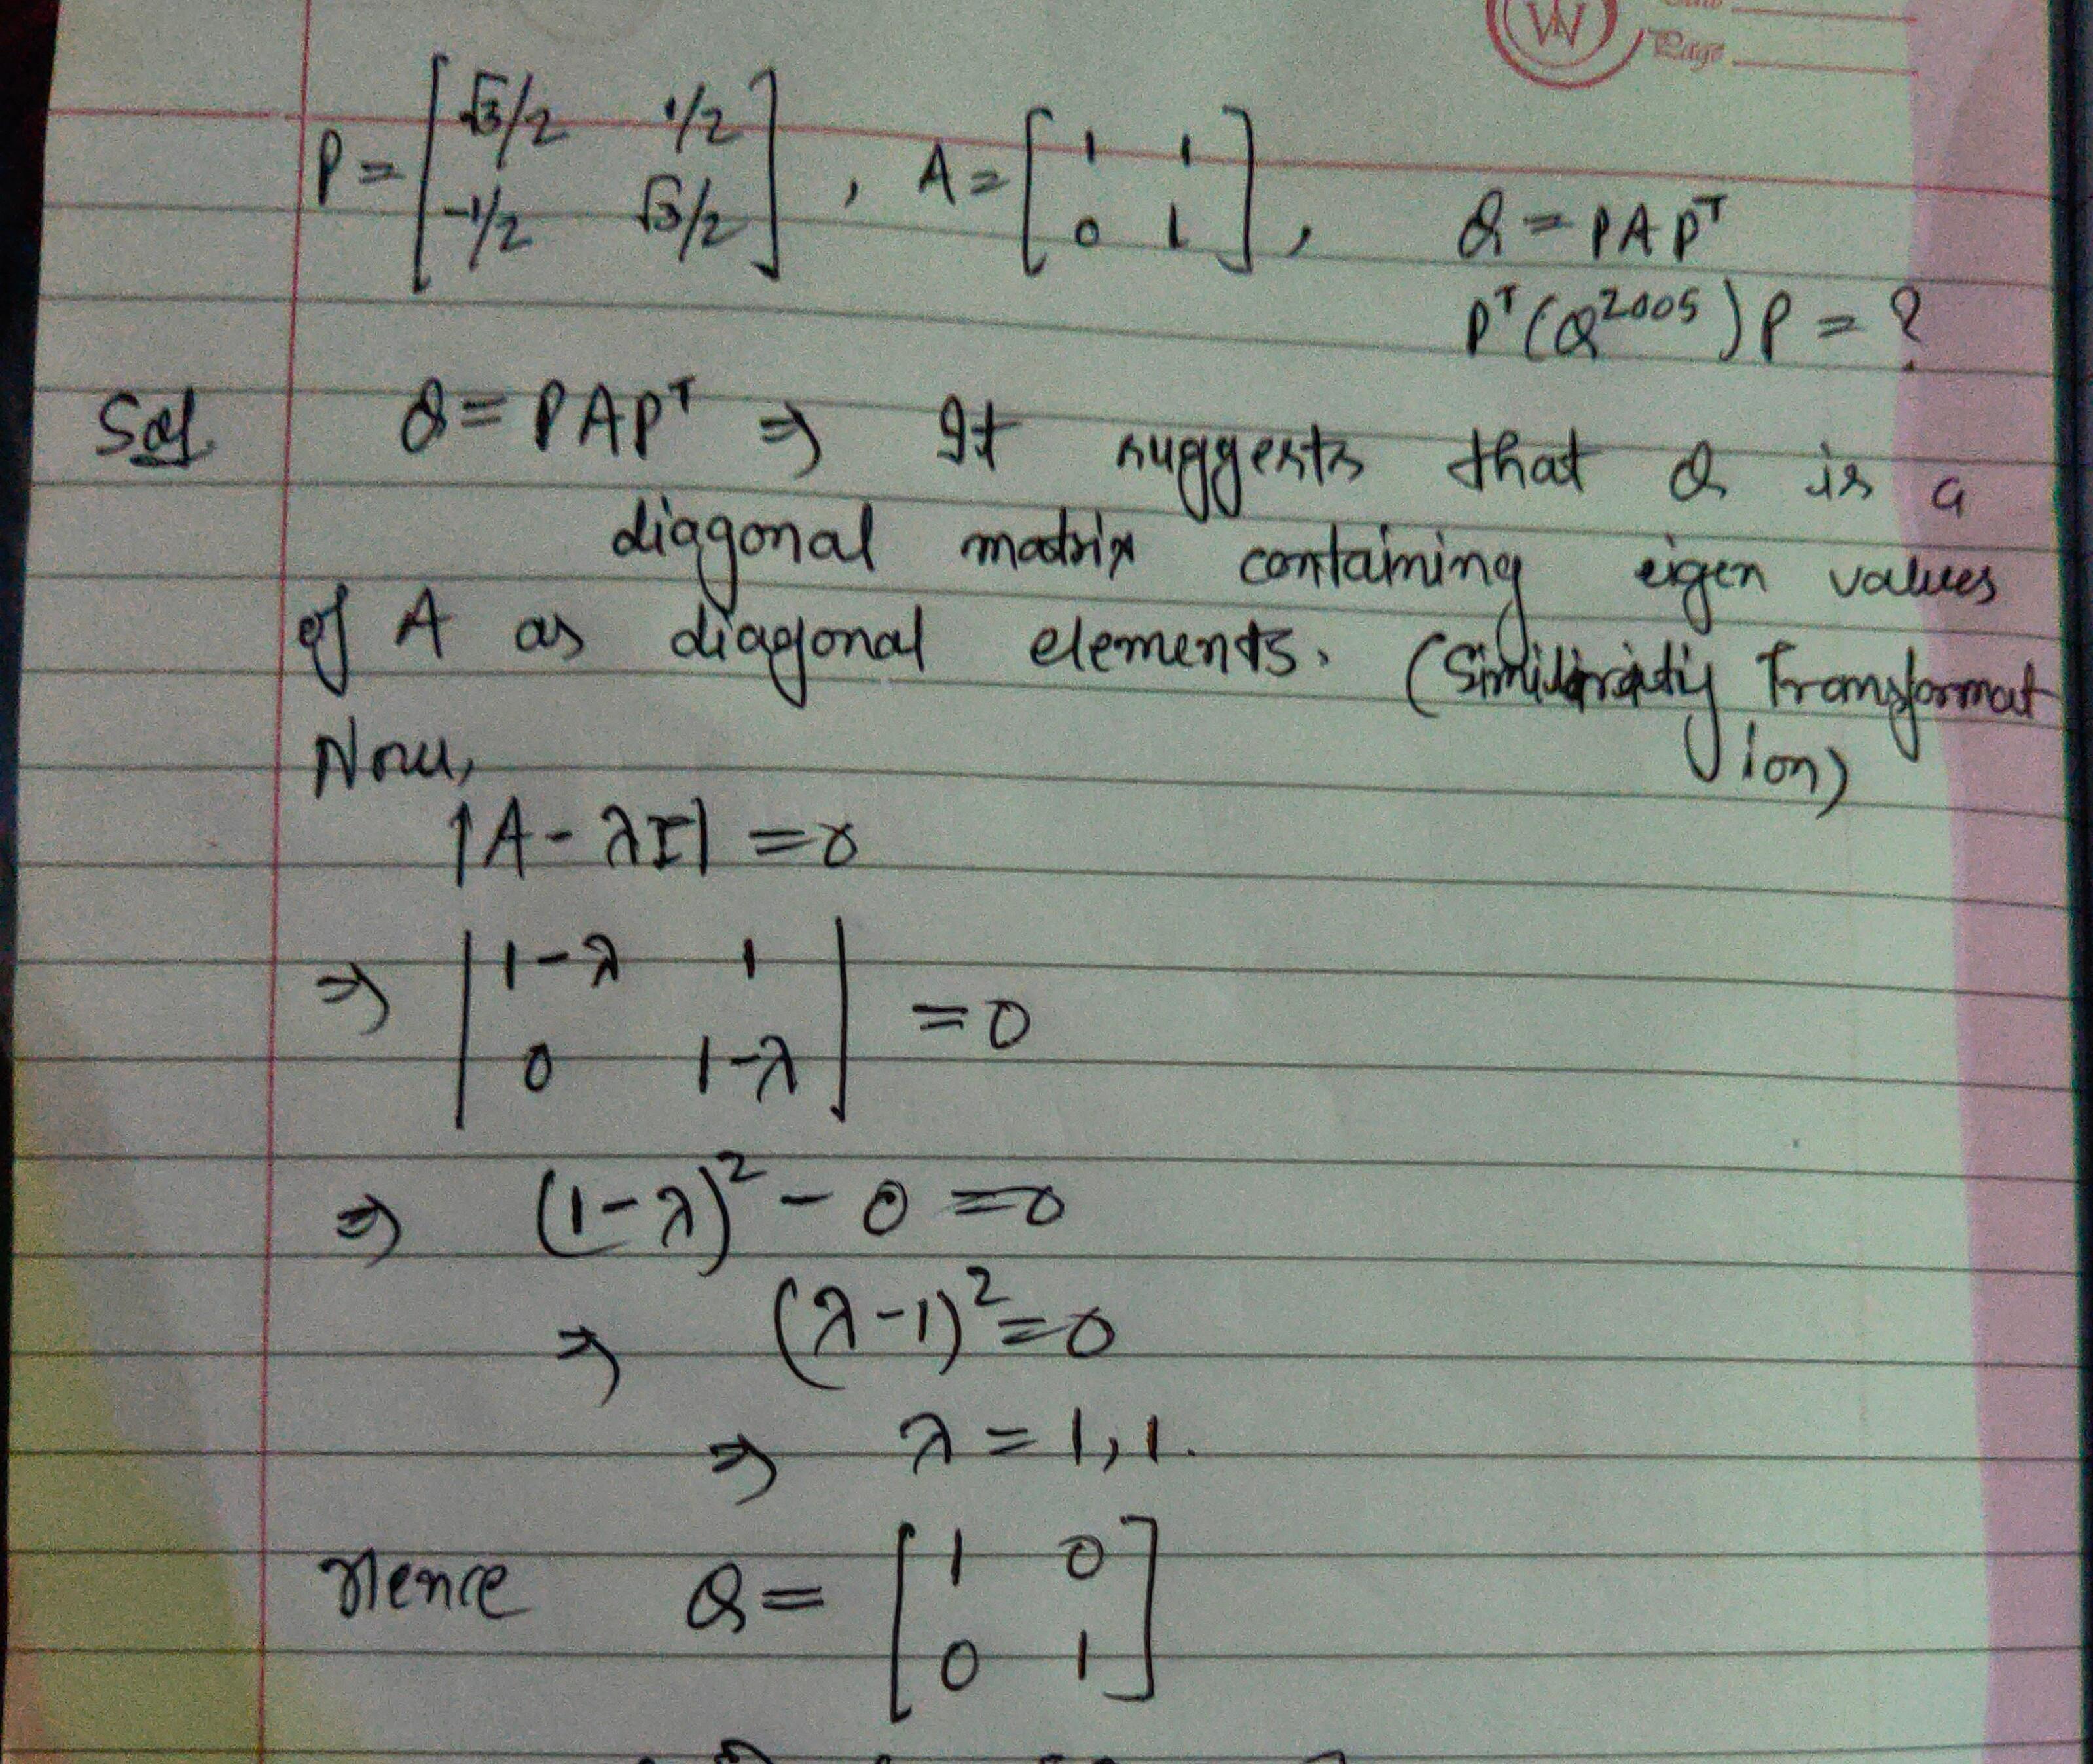 Page
P = [ √3/2 1/2 ; -1/2 √3/2 ] , A = [ 1 1 ; 0 1 ] , Q = PAPᵀ
Pᵀ(Q²⁰⁰⁵)P = ?
Sol Q = PAPᵀ ⇒ It suggests that Q is a
diagonal matrix containing eigen values
of A as diagonal elements. (Similarity Transformat
ion)
Now,
|A - λI| = 0
⇒ | 1-λ 1 ; 0 1-λ | = 0
⇒ (1-λ)² - 0 = 0
⇒ (λ-1)² = 0
⇒ λ = 1, 1.
Hence Q = [ 1 0 ; 0 1 ]